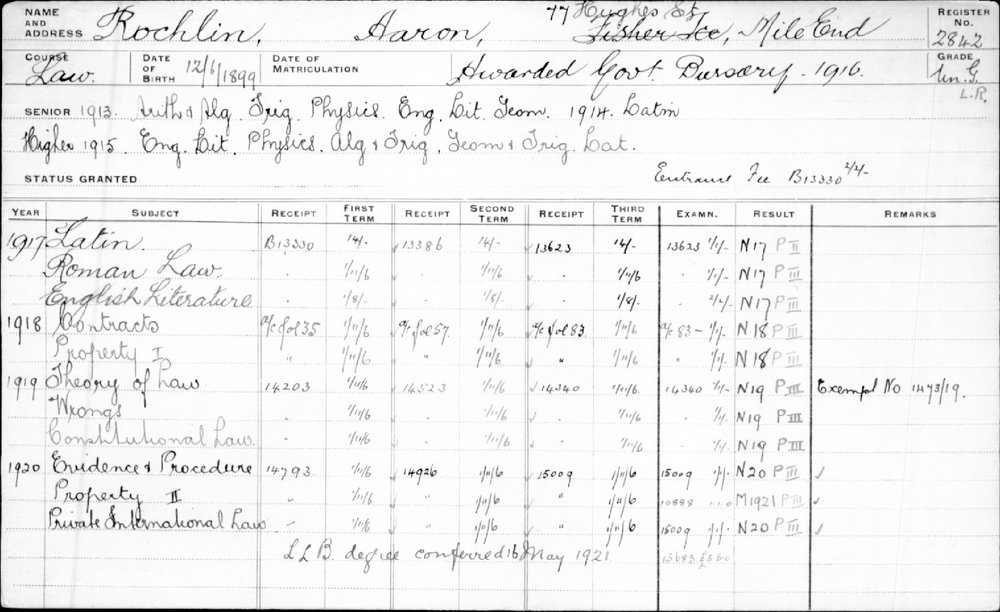 NAME AND ADDRESS Rochlin, Aaron, 77 Hughes St, Fisher Tce, Mile End REGISTER No. 2842
COURSE Law. DATE OF BIRTH 12/6/1899 DATE OF MATRICULATION Awarded Govt. Bursary. 1916. GRADE Un. G. L.R.
SENIOR 1913. Arith & Alg. Trig. Physics. Eng. Lit. Geom. 1914. Latin
Higher 1915. Eng. Lit. Physics. Alg & Trig. Geom & Trig. Lat.
STATUS GRANTED Entrance Fee B13330 2/2/-
YEAR SUBJECT RECEIPT FIRST TERM RECEIPT SECOND TERM RECEIPT THIRD TERM EXAMN. RESULT REMARKS
1917 Latin. B13330 14/- 13386 14/- 13623 14/- 13623 1/1/- N17 P II
Roman Law. 1/11/6 1/11/6 1/11/6 1/1/- N17 P III
English Literature. 1/8/- 1/8/- 1/8/- 2/2/- N17 P II
1918 Contracts a/c fol 35 1/11/6 a/c fol 57 1/11/6 a/c fol 83. 1/11/6 a/c 83 - 1/1/- N18 P III
Property I " 1/11/6 " 1/11/6 " 1/11/6 " 1/1/- N18 P III
1919 Theory of Law 14203 1/11/6 14523 1/11/6 14340 1/11/6 14340 1/1/- N19 P III Exempt No 1473/19.
Wrongs 1/11/6 1/11/6 1/11/6 1/1/- N19 P III
Constitutional Law. 1/11/6 1/11/6 1/11/6 1/1/- N19 P III
1920 Evidence & Procedure 14793 1/11/6 14926 1/11/6 15009 1/11/6 15009 1/1/- N20 P III ✓
Property II " 1/11/6 " 1/11/6 " 1/11/6 10888 M1921 P III ✓
Private International Law - 1/11/6 1/11/6 " 1/11/6 15009 1/1/- N20 P III ✓
LLB. degree conferred 16 May 1921. 15683